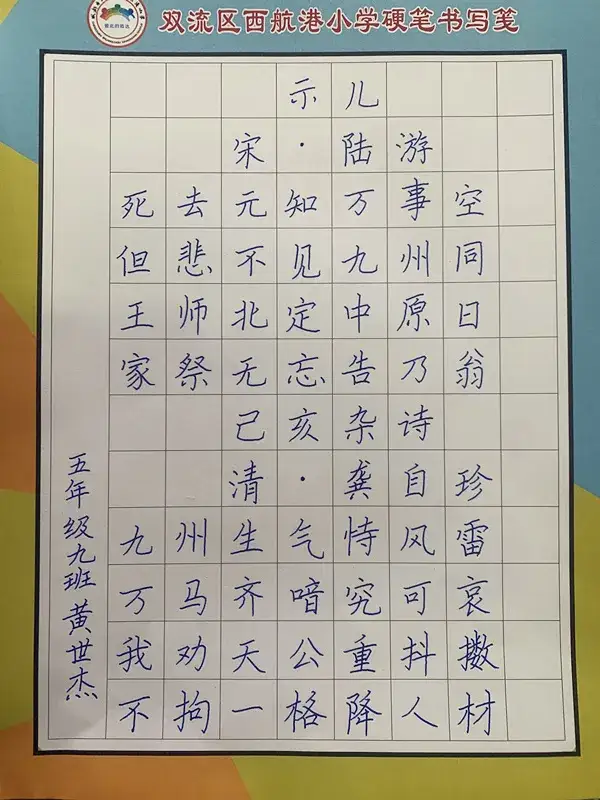 双流区西航港小学硬笔书写笺
示儿
宋·陆游
死去元知万事空
但悲不见九州同
王师北定中原日
家祭无忘告乃翁
己亥杂诗
清·龚自珍
九州生气恃风雷
万马齐喑究可哀
我劝天公重抖擞
不拘一格降人材
五年级九班 黄世杰